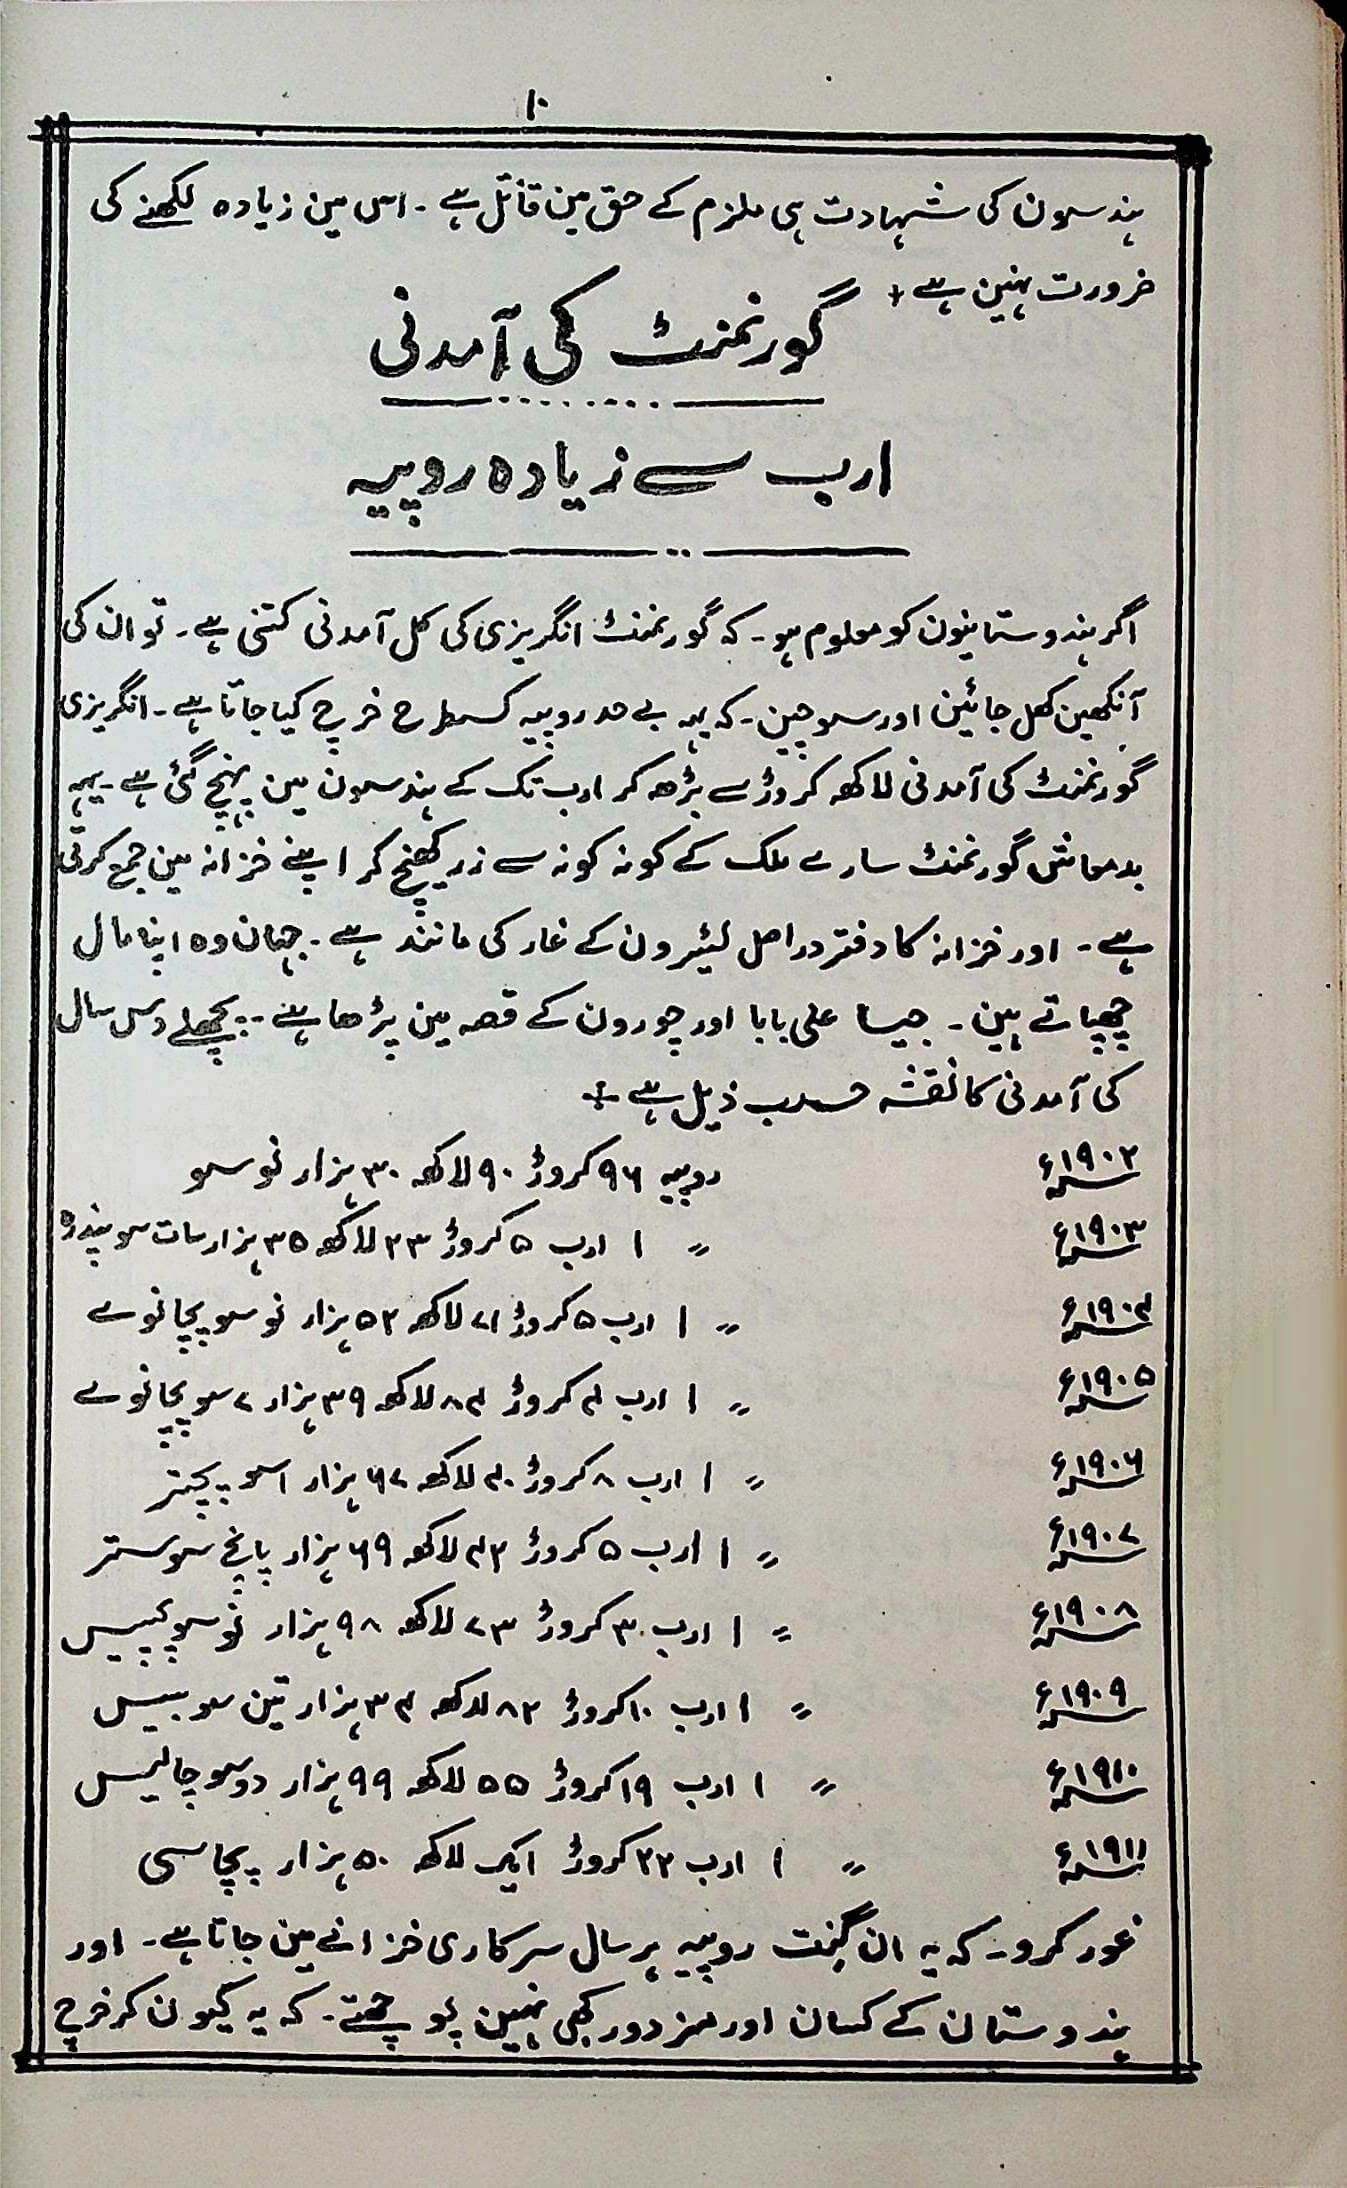 ۱۰
ہندسون کی شہادت ہی ملزم کے حق مین قاتل ہے ۔ اس مین زیادہ لکھنے کی
ضرورت نہین ہے +
گورنمنٹ کی آمدنی
ارب سے زیادہ روپیہ
اگر ہندوستانیون کو معلوم ہو ۔ کہ گورنمنٹ انگریزی کی کل آمدنی کتنی ہے ۔ تو ان کی
آنکھین کھل جائین اور سوچین ۔ کہ یہہ بے حد روپیہ کسطرح خرچ کیا جاتا ہے ۔ انگریزی
گورنمنٹ کی آمدنی لاکھ کروڑ سے بڑھ کر ارب تک کے ہندسون مین پہنچ گئی ہے ۔ یہہ
بدمعاش گورنمنٹ سارے ملک کے کونہ کونہ سے زر کھینچ کر اپنے خزانہ مین جمع کرتی
ہے ۔ اور خزانہ کا دفتر دراصل لٹیرون کے غار کی مانند ہے ۔ جہان وہ اپنا مال
چھپاتے ہین ۔ جیسا علی بابا اور چورون کے قصہ مین پڑھا ہے ۔ پچھلے دس سال
کی آمدنی کا نقشہ حسب ذیل ہے +
سنہ ۱۹۰۲ء روپیہ ۹۶ کروڑ ۹۰ لاکھ ۳۰ ہزار نو سو
سنہ ۱۹۰۳ء 〃 ۱ ارب ۵ کروڑ ۲۳ لاکھ ۳۵ ہزار سات سو پندرہ
سنہ ۱۹۰۴ء 〃 ۱ ارب ۵ کروڑ ۷۱ لاکھ ۵۲ ہزار نو سو پچانوے
سنہ ۱۹۰۵ء 〃 ۱ ارب ۴ کروڑ ۸۴ لاکھ ۳۹ ہزار ۷ سو پچانوے
سنہ ۱۹۰۶ء 〃 ۱ ارب ۸ کروڑ ۴۰ لاکھ ۶۷ ہزار ۱سو پچتر
سنہ ۱۹۰۷ء 〃 ۱ ارب ۵ کروڑ ۴۳ لاکھ ۶۹ ہزار پانچ سو ستر
سنہ ۱۹۰۸ء 〃 ۱ ارب ۳ کروڑ ۷۳ لاکھ ۹۸ ہزار نو سو پچیس
سنہ ۱۹۰۹ء 〃 ۱ ارب ۱۰ کروڑ ۸۲ لاکھ ۳۴ ہزار تین سو بیس
سنہ ۱۹۱۰ء 〃 ۱ ارب ۱۹ کروڑ ۵۵ لاکھ ۹۹ ہزار دو سو چالیس
سنہ ۱۹۱۱ء 〃 ۱ ارب ۲۲ کروڑ ایک لاکھ ۵۰ ہزار پچاسی
غور کرو ۔ کہ یہ ان گنت روپیہ ہر سال سرکاری خزانے مین جاتا ہے ۔ اور
ہندوستان کے کسان اور مزدور کبھی نہین پوچھتے ۔ کہ یہ کیون کر خرچ